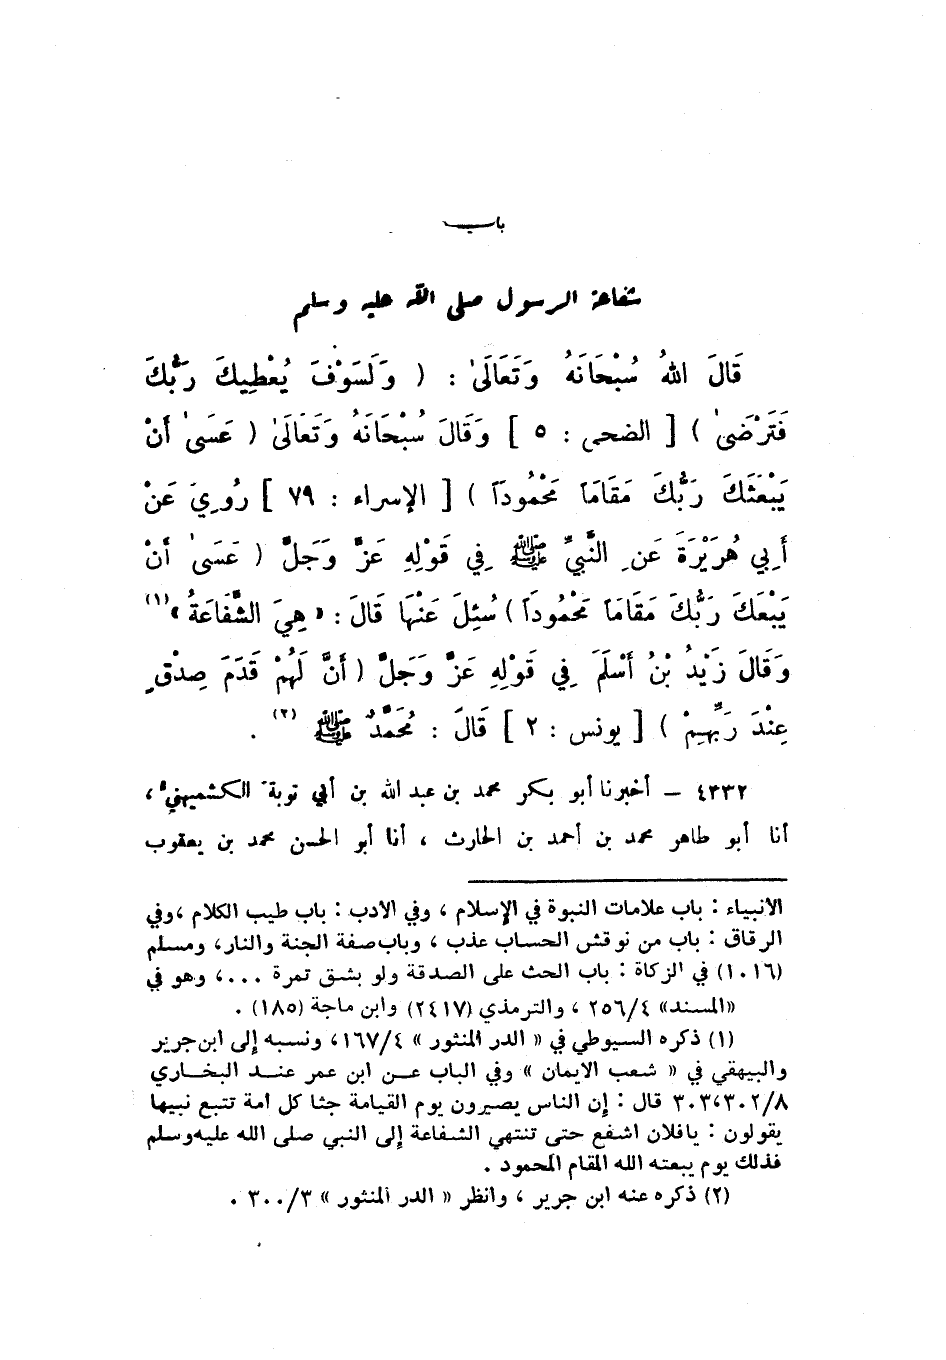 باب
شفاعة الرسول صلى الله عليه وسلم
قَالَ اللهُ سُبْحَانَهُ وَتَعَالَىٰ : ( وَلَسَوْفَ يُعْطِيكَ رَبُّكَ
فَتَرْضَىٰ ) [ الضحى : ٥ ] وَقَالَ سُبْحَانَهُ وَتَعَالَىٰ ( عَسَىٰ أَنْ
يَبْعَثَكَ رَبُّكَ مَقَامَاً مَحْمُودَاً ) [ الإسراء : ٧٩ ] رُوِيَ عَنْ
أَبِي هُرَيْرَةَ عَنِ النَّبِيِّ ﷺ فِي قَوْلِهِ عَزَّ وَجَلَّ ( عَسَىٰ أَنْ
يَبْعَكَ رَبُّكَ مَقَامَاً مَحْمُودَاً ) سُئِلَ عَنْهَا قَالَ : « هِيَ الشَّفَاعَةُ »(١)
وَقَالَ زَيْدُ بْنُ أَسْلَمَ فِي قَوْلِهِ عَزَّ وَجَلَّ ( أَنَّ لَهُمْ قَدَمَ صِدْقٍ
عِنْدَ رَبِّهِمْ ) [ يونس : ٢ ] قَالَ : مُحَمَّدٌ ﷺ (٢) .
٤٣٣٢ – أخبرنا أبو بكر محمد بن عبد الله بن أبي توبة الكشميهني ،
أنا أبو طاهر محمد بن أحمد بن الحارث ، أنا أبو الحسن محمد بن يعقوب
الأنبياء : باب علامات النبوة في الإسلام ، وفي الأدب : باب طيب الكلام ، وفي
الرقاق : باب من نوقش الحساب عذب ، وباب صفة الجنة والنار ، ومسلم
(١٠١٦) في الزكاة : باب الحث على الصدقة ولو بشق تمرة ...، وهو في
«المسند» ٢٥٦/٤ ، والترمذي (٢٤١٧) وابن ماجة (١٨٥) .
(١) ذكره السيوطي في « الدر المنثور » ١٦٧/٤ ، ونسبه إلى ابن جرير
والبيهقي في « شعب الايمان » وفي الباب عن ابن عمر عند البخاري
٣٠٣،٣٠٢/٨ قال : إن الناس يصيرون يوم القيامة جثا كل امة تتبع نبيها
يقولون : يافلان اشفع حتى تنتهي الشفاعة إلى النبي صلى الله عليه وسلم
فذلك يوم يبعثه الله المقام المحمود .
(٢) ذكره عنه ابن جرير ، وانظر « الدر المنثور » ٣٠٠/٣ .